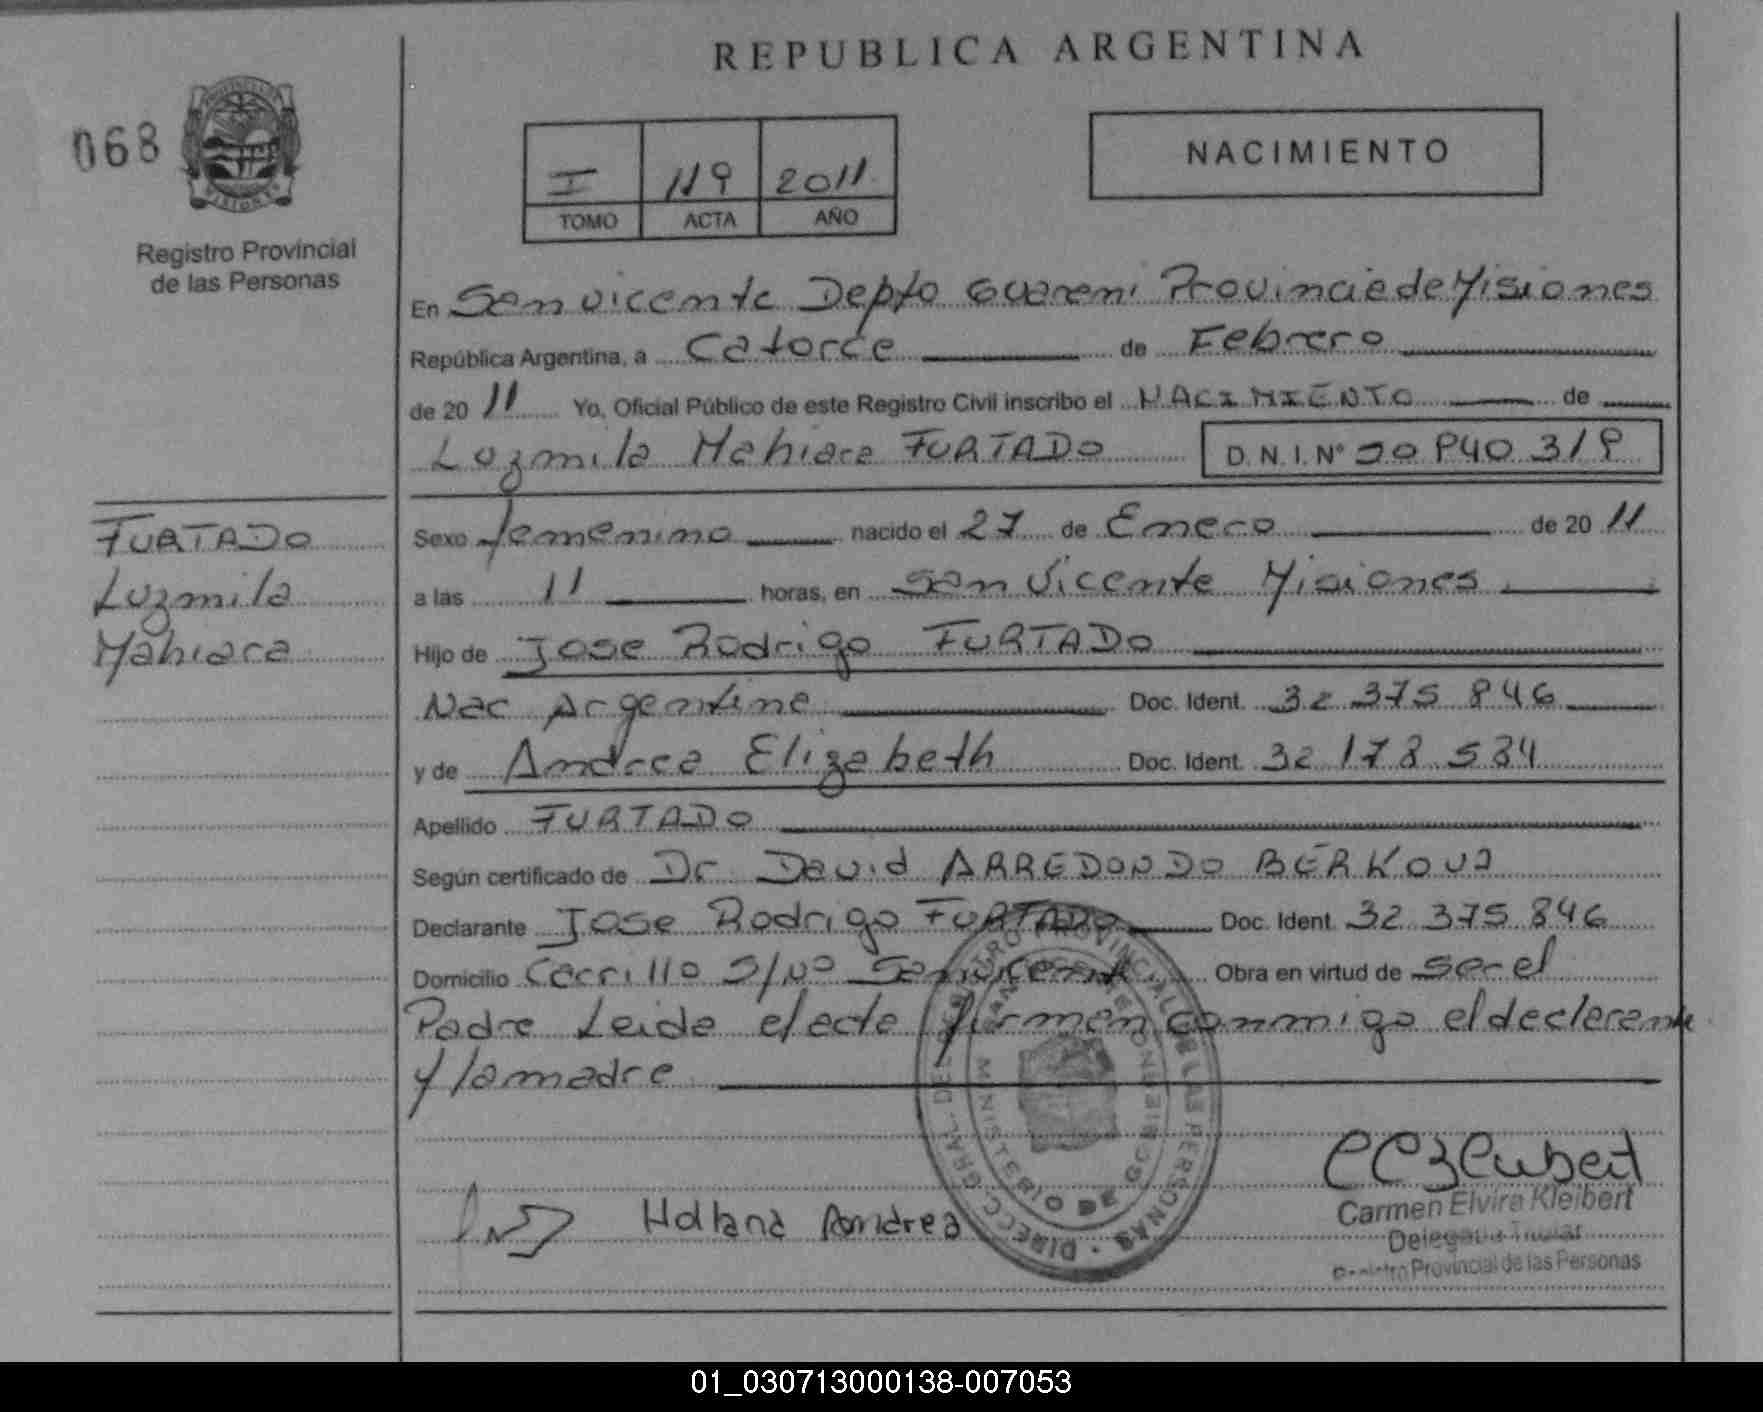 REPUBLICA ARGENTINA
068
NACIMIENTO
I 119 2011
TOMO ACTA AÑO
Registro Provincial
de las Personas
En San vicente Depto Guarani Provincia de Misiones
República Argentina, a Catorce de Febrero
de 20 11 Yo, Oficial Público de este Registro Civil inscribo el NACIMIENTO de
Luzmila Mahiara FURTADO D.N.I. Nº
FURTADO
Luzmila
Mahiara
Sexo femenino nacido el 27 de Enero de 20 11
a las 11 horas, en San Vicente Misiones
Hijo de Jose Rodrigo FURTADO
Nac Argentina Doc. Ident. 32 375 846
y de Andrea Elizabeth Doc. Ident. 32 178 584
Apellido FURTADO
Según certificado de Dr David ARREDONDO BERKOVA
Declarante Jose Rodrigo FURTADO Doc. Ident. 32 375 846
Domicilio Cerrillo S/Nº San vicente Obra en virtud de ser el
Padre Leida el acta firman conmigo el declarante
y la madre
DIRECC. GRAL. DE REGISTRO PROVINCIAL DE LAS PERSONAS
MINISTERIO DE GOBIERNO
Andrea
Carmen Elvira Kleibert
Delegada Titular
Registro Provincial de las Personas
01_030713000138-007053